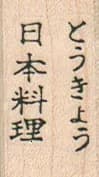 とうきょう
日本料理